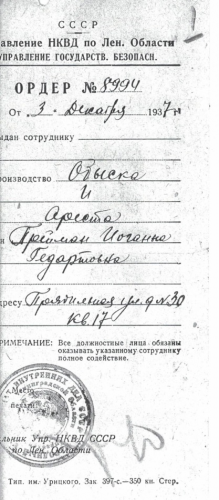 СССР
авление НКВД по Лен. Области
УПРАВЛЕНИЕ ГОСУДАРСТВ. БЕЗОПАСН.
ОРДЕР № 8994
От 3 Декабря 1937 г.
ыдан сотруднику
роизводство Обыска
и
Ареста
Прейман Иоганна
Гедартовна
дресу Правильная ул д № 30
кв. 17
РИМЕЧАНИЕ: Все должностные лица обязаны
оказывать указанному сотруднику
полное содействие.
Место
печати
льник Упр. НКВД СССР
по Лен. Области
Тип. им. Урицкого. Зак 397-с.—350 кн. Стер.